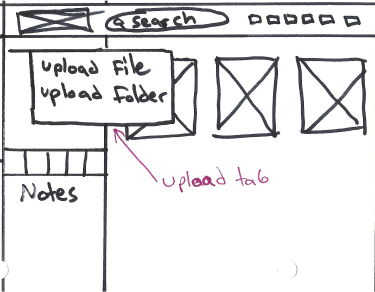 search
upload File
upload Folder
upload tab
Notes